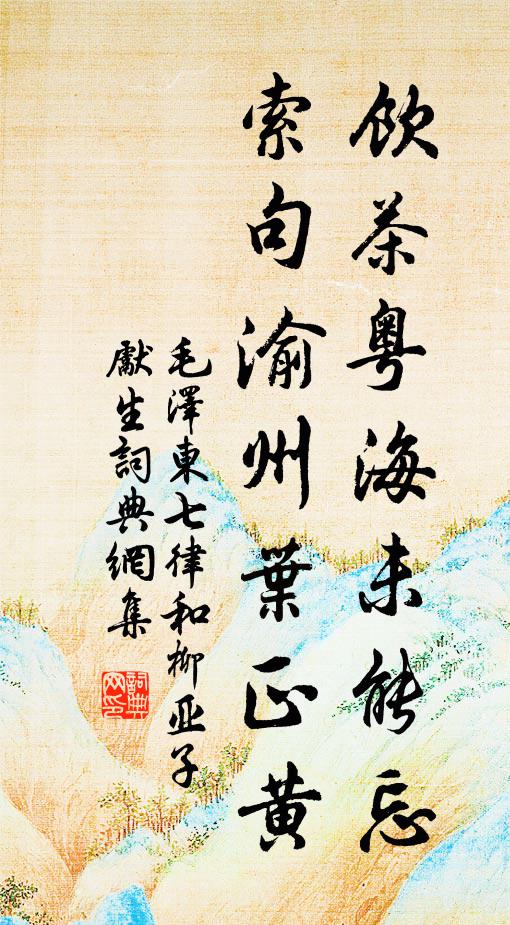 飲茶粵海未能忘
索句渝州葉正黄
毛澤東七律和柳亚子
獻生詞典網集
詞典
网印